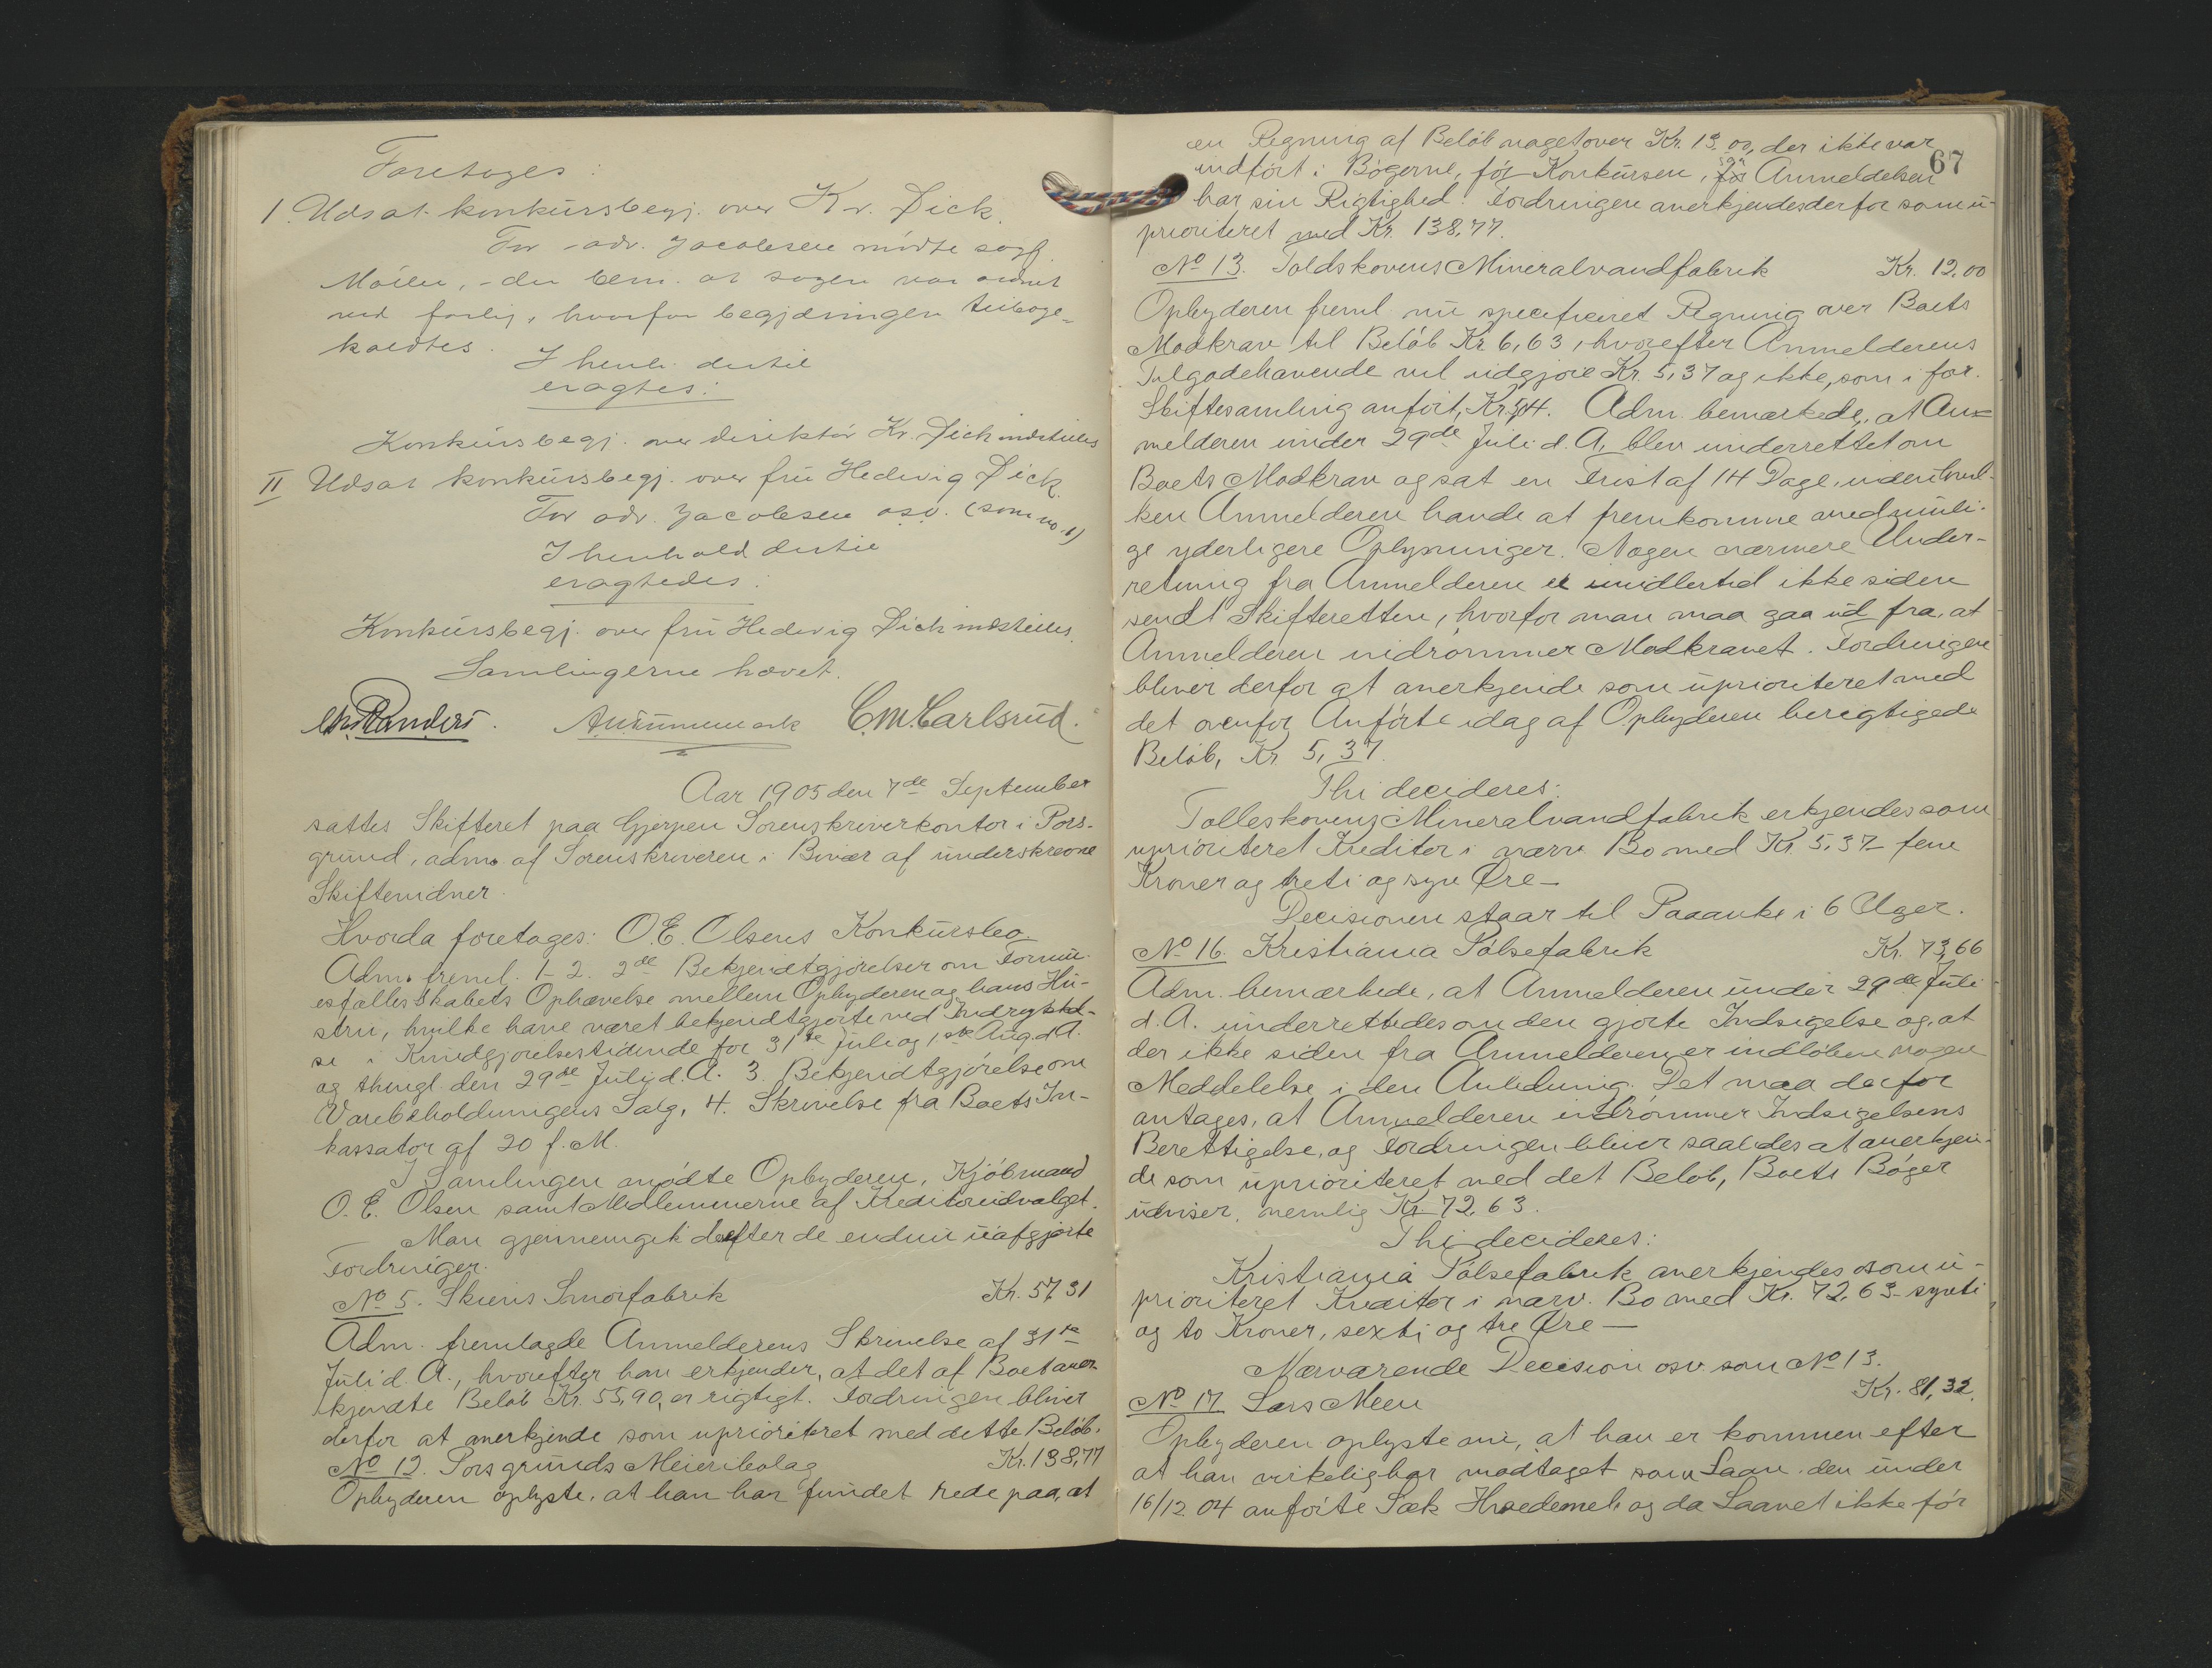 Foretages:
1. Udsat konkursbegj. over Kr. Dick.
For adv. Jacobsen mødte sagf.
Möller, - der bem. at sagen var ordnet
ved forlig, hvorfor begjæringen tilbage-
kaldtes.
I henh. dertil
eragtes:
Konkursbegj. over direktør Kr. Dick indstilles
II Udsat konkursbegj. over fru Hedevig Dick.
For adv. Jacobsen osv. (som no 1)
I henhold dertil
eragtedes:
Konkursbegj. over fru Hedevig Dick indstilles.
Samlingerne hævet.
Chr. Randers. C.M. Carlsrud.
Aar 1905 den 7de September
sattes Skifteret paa Gjerpen Sorenskriverkontor i Pors-
grund, adm. af Sorenskriveren i Bivær af underskrevne
Skiftevidner.
Hvorda foretages: O.E. Olsens Konkursbo
Adm. freml. 1-2. 2de Bekjendtgjørelser om Formu-
esfællesskabets Ophævelse mellem Opbyderen og hans Hu-
stru, hvilke have været bekjendtgjorte ved Indrykkel-
se i Kundgjørelsestidende for 31te Juli og 1ste Aug. d.A.
og thingl. den 29de Juli d.A. 3. Bekjendtgjørelse om
Varebeholdningens Salg, 4. Skrivelse fra Boets In-
kassator af 20 f.M.
I Samlingen mødte Opbyderen, Kjøbmand
O.E. Olsen samt Medlemmerne af Kreditorudvalget.
Man gjennemgik derefter de endnu uafgjorte
Fordringer.
No 5. Skiens Smørfabrik Kr. 57,31
Adm. fremlagde Anmelderens Skrivelse af 31te
Juli d.A., hvorefter han erkjender, at det af Boet aner-
kjendte Beløb Kr. 55,90, er rigtigt. Fordringen bliver
derfor at anerkjende som uprioriteret med dette Beløb.
No 12. Porsgrunds Meieribolag Kr. 138,77
Opbyderen oplyste, at han har fundet rede paa, at
67
en Regning af Beløb noget over Kr. 13,00, der ikke var
indført i Bøgerne, før Konkursen, saa Anmeldelsen
har sin Rigtighed. Fordringen anerkjendes derfor som u-
prioriteret med Kr. 138,77.
No 13. Toldskovens Mineralvandfabrik Kr. 12,00
Opbyderen freml. nu specificeret Regning over Boets
Modkrav til Beløb Kr 6,63, hvorefter Anmelderens
Tilgodehavende vil udgjøre Kr. 5,37 og ikke, som i for.
Skiftesamling anført, Kr. Adm. bemærkede, at An-
melderen under 29de Juli d.A. blev underrettet om
Boets Modkrav og sat en Frist af 14 Dage, inden hvil-
ken Anmelderen havde at fremkomme med muli-
ge yderligere Oplysninger. Nogen nærmere Under-
retning fra Anmelderen er imidlertid ikke siden
sendt Skifteretten, hvorfor man maa gaa ud fra, at
Anmelderen indrømmer Modkravet. Fordringen
bliver derfor at anerkjende som uprioriteret med
det ovenfor Anførte idag af Opbyderen beregtigede
Beløb, Kr. 5,37.
Thi decideres:
Tolleskovens Mineralvandfabrik erkjendes som
uprioriteret Kreditor i nærv. Bo med Kr 5,37 - fem
Kroner og treti og syv Øre -
Decisionen staar til Paaanke i 6 Uger.
No 16. Kristiania Pølsefabrik Kr. 73,66
Adm. bemærkede, at Anmelderen under 29de Juli
d.A. underrettedes om den gjorte Indsigelse og, at
der ikke siden fra Anmelderen er indløben nogen
Meddelelse i den Anledning. Det maa derfor
antages, at Anmelderen indrømmer Indsigelsens
Berettigelse, og Fordringen bliver saaledes at anerkjen-
de som uprioriteret med det Beløb, Boets Bøger
udviser, nemlig Kr. 72,63.
Thi decideres:
Kristiania Pølsefabrik anerkjendes som u-
prioriteret Kreditor i nærv. Bo med Kr. 72,63 - sytti
og to Kroner, sexti og tre Øre -
Nærværende Decision osv. som No 13.
No 17 Lars Meen Kr. 81,32.
Opbyderen oplyste nu, at han er kommen efter
at han virkelig har modtaget som Laan den under
16/12.04 anførte Sæk Hvedemel, og da Laanet ikke før